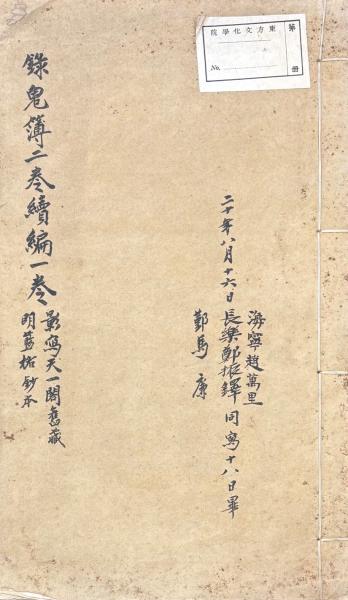 東方文化學院
第 冊
No.
二十年八月十六日
海寧趙萬里
長樂鄭振鐸
鄞馬廉
同寫十八日畢
錄鬼簿二卷續編一卷
影寫天一閣舊藏
明藍格鈔本